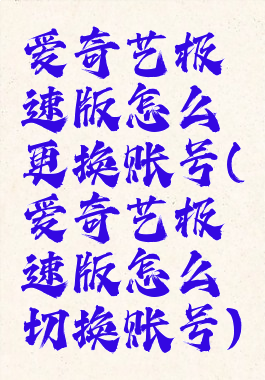 爱奇艺极
速版怎么
更换账号(
爱奇艺极
速版怎么
切换账号)